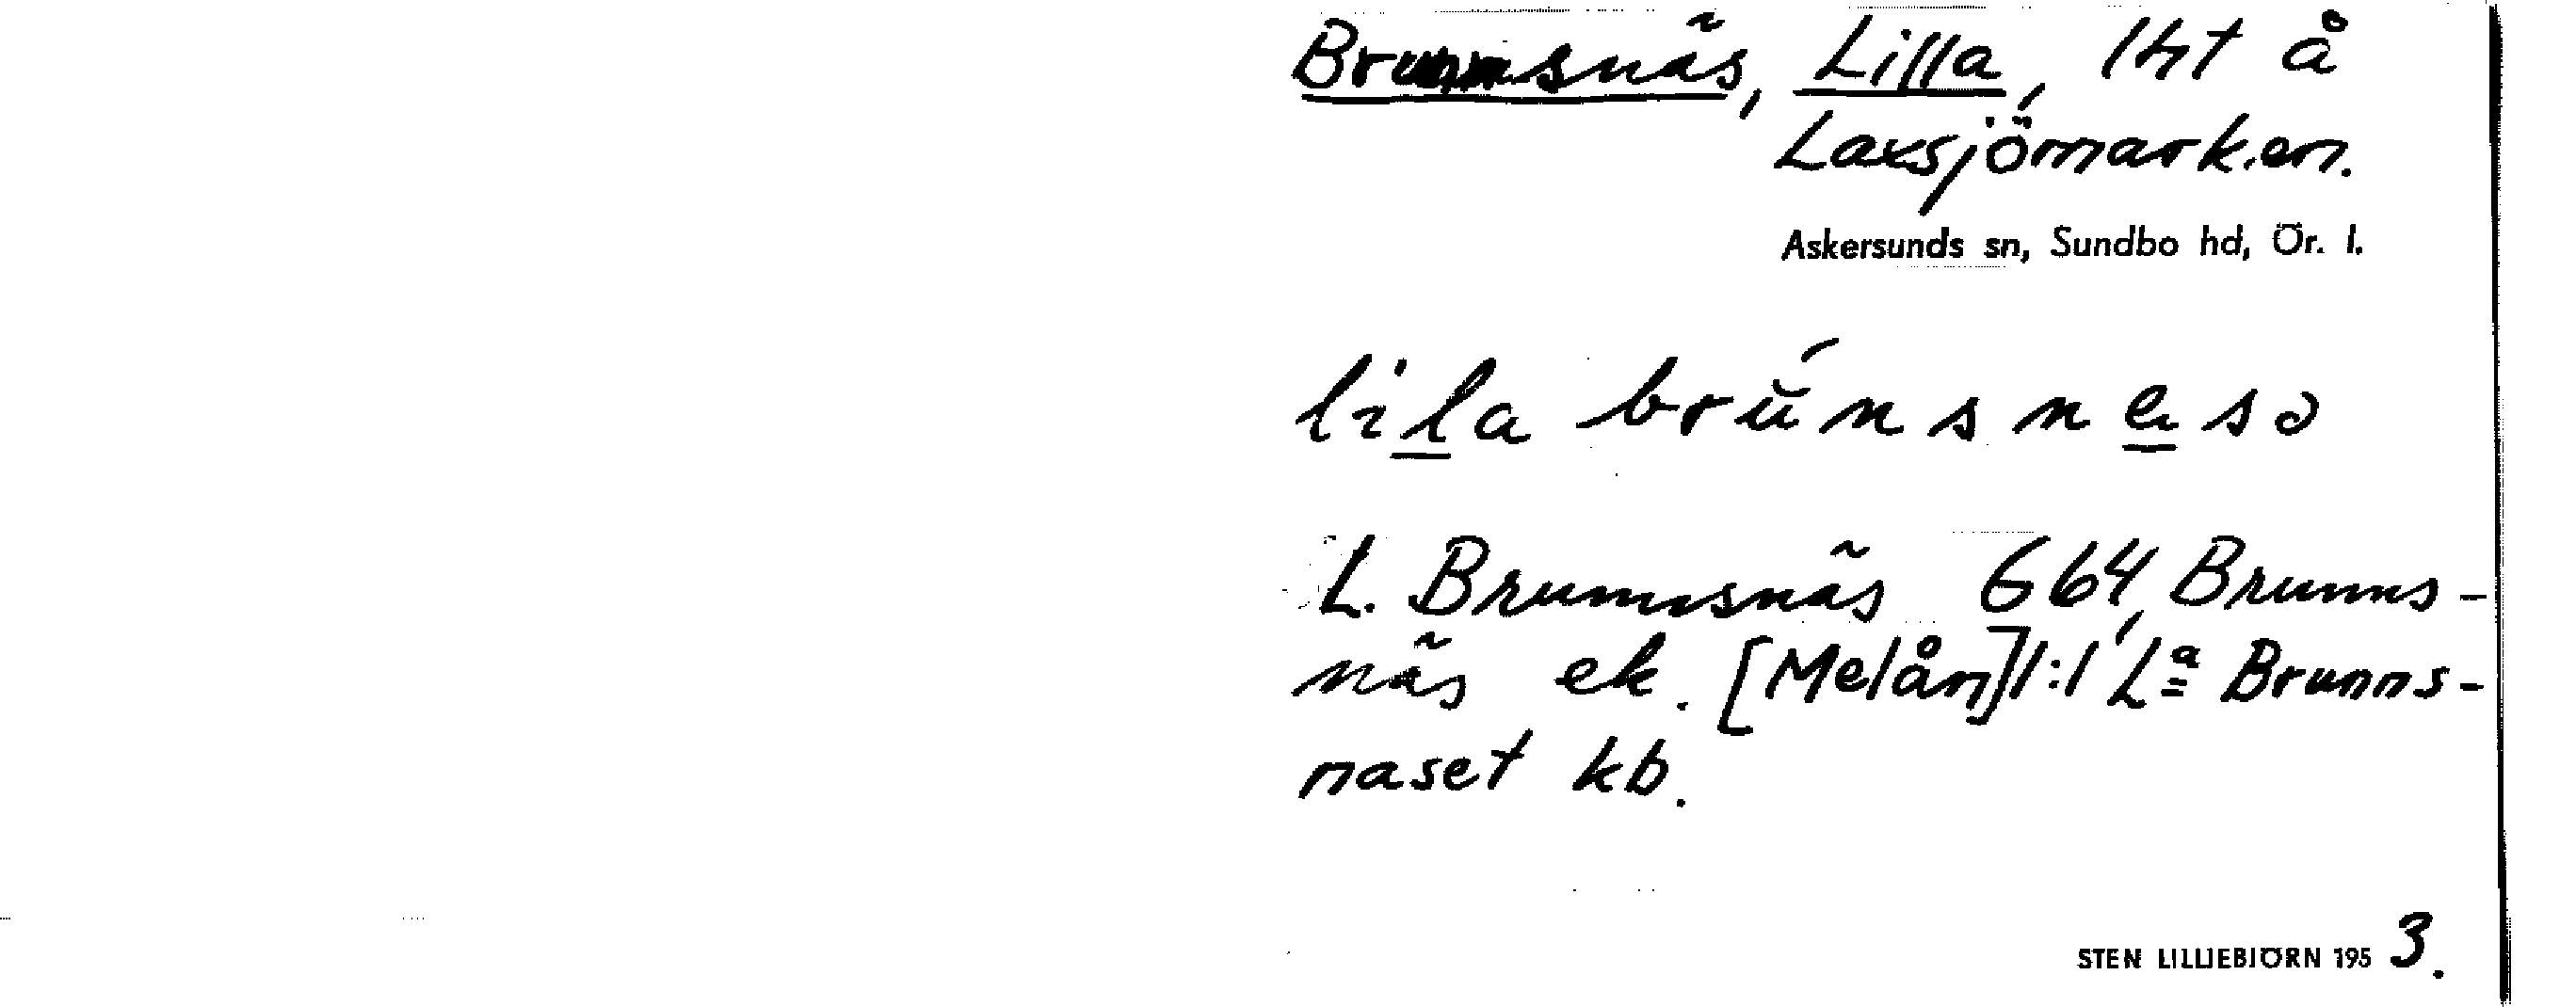 Brunnsnäs, Lilla, lht å
Laxsjömarken.
Askersunds sn, Sundbo hd, Ör. l.
lila brŭ́nsnesə
L. Brunnsnäs G 64, Brunns-
näs ek. [Melån] 1:1, Lª Brunns-
naset kb.
STEN LILLIEBJÖRN 1953.